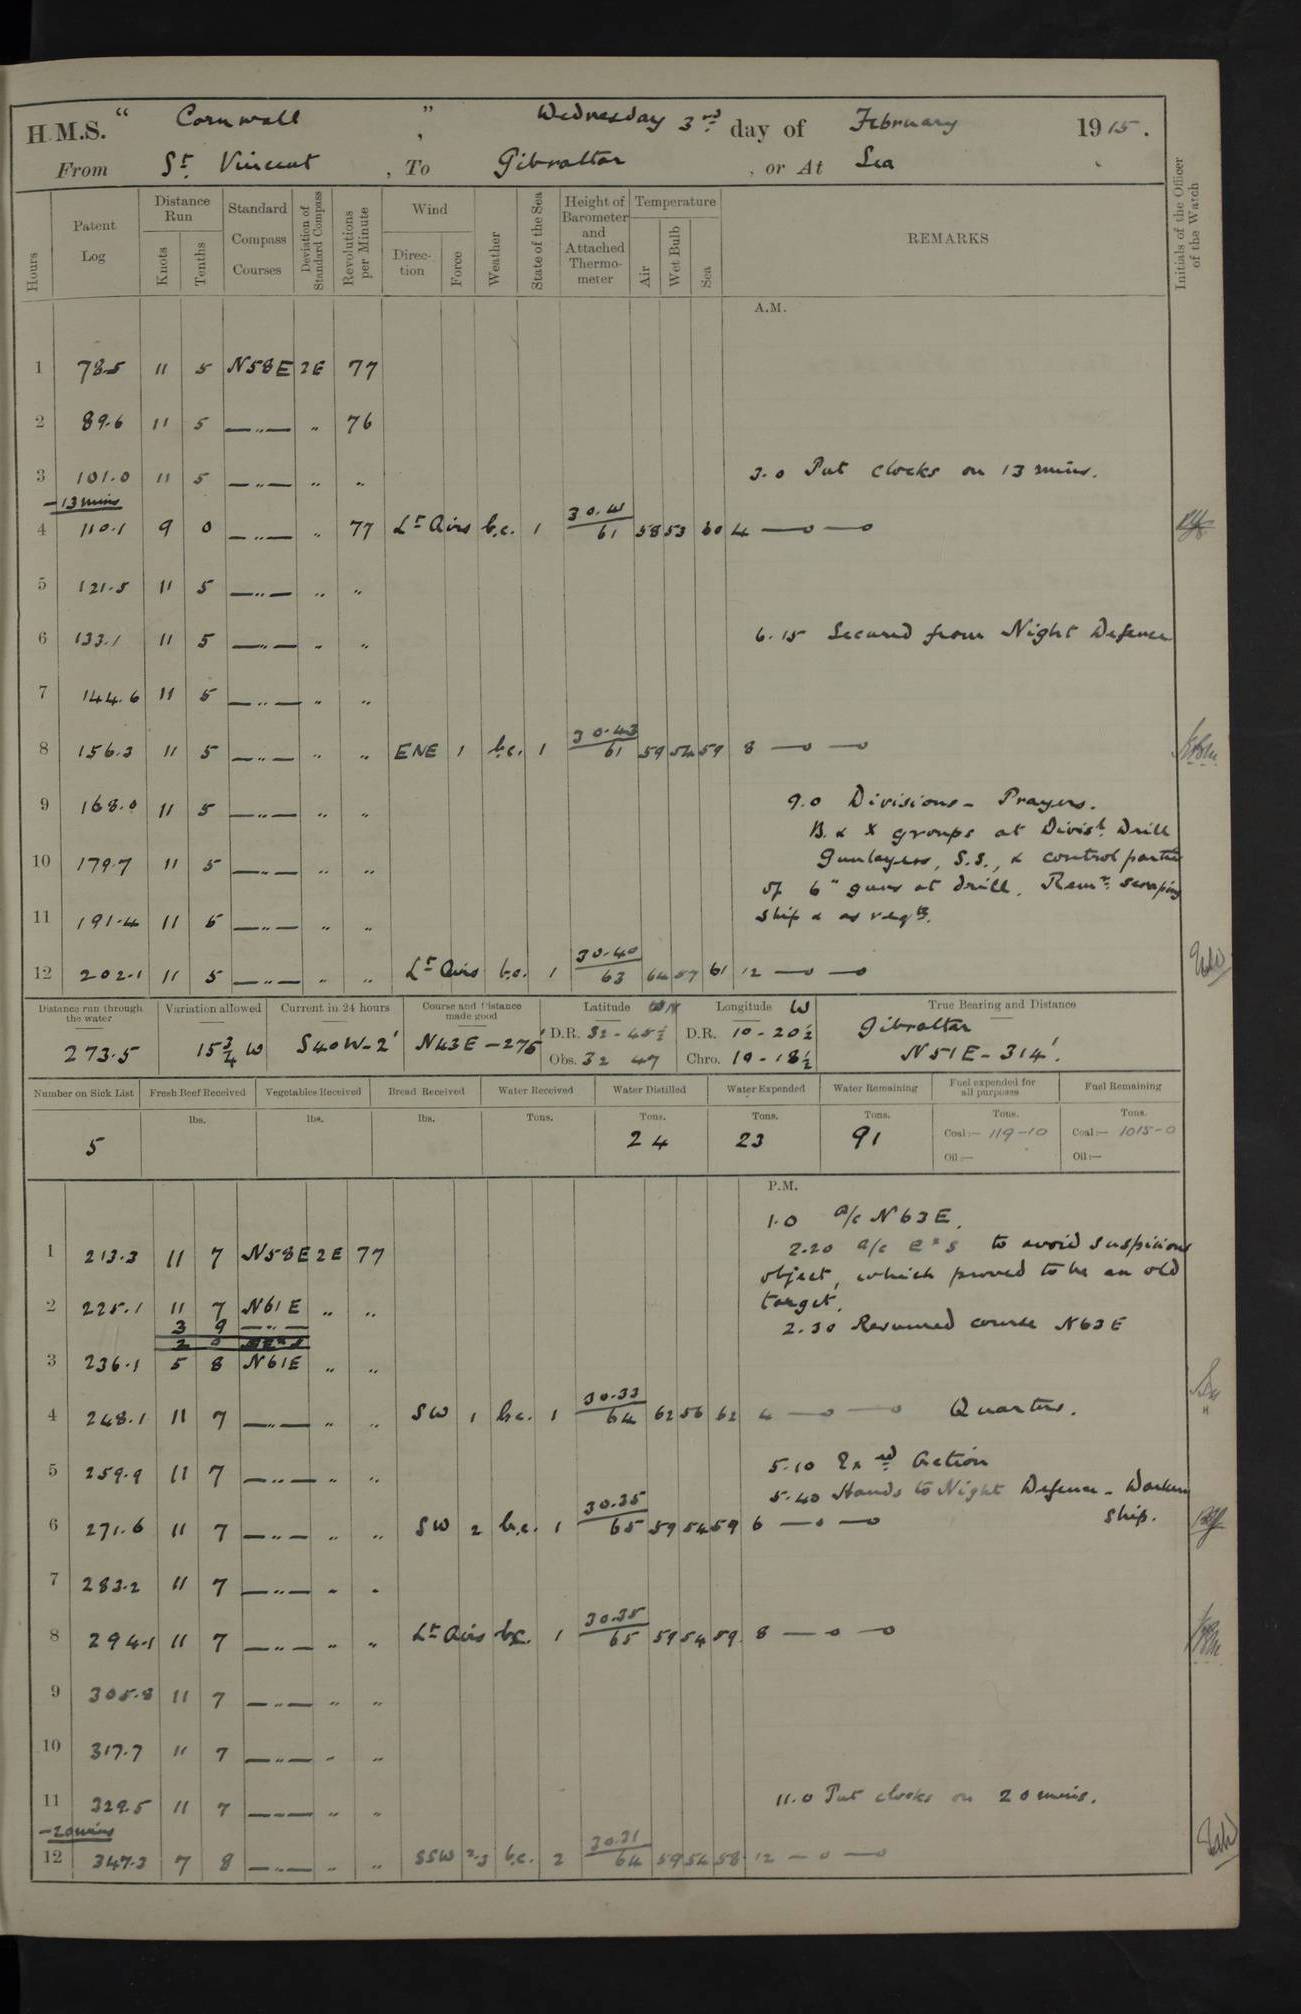 H.M.S. " Cornwall " , Wednesday 3rd day of February 1915.
From St. Vincent , To Gibraltar , or At Sea
Hours Patent Log Distance Run Knots Tenths Standard Compass Courses Deviation of Standard Compass Revolutions per Minute Wind Direction Force Weather State of the Sea Height of Barometer and Attached Thermometer Temperature Air Wet Bulb Sea REMARKS Initials of the Officer of the Watch
A.M.
1 78.5 11 5 N58E 2E 77
2 89.6 11 5 —"— " 76
3 101.0 11 5 —"— " " 3.0 Put clocks on 13 mins.
-13 mins
4 110.1 9 0 —"— " 77 Lt Airs b.c. 1 61 58 53 60 4 —o —o
5 121.5 11 5 —"— " "
6 133.1 11 5 —"— " " 6.15 Secured from Night Defence
7 144.6 11 5 —"— " "
8 156.3 11 5 —"— " " ENE 1 b.c. 1 30.43 61 59 54 59 8 —o —o
9 168.0 11 5 —"— " " 9.0 Divisions - Prayers.
B. & X groups at Divisl. Drill
10 179.7 11 5 —"— " " Gunlayers, S.S., & control parties
of 6" guns at drill. Remr. scraping
11 191.4 11 5 —"— " " ship & as reqd.
12 202.1 11 5 —"— " " Lt Airs b.c. 1 30.40 63 64 57 61 12 —o —o
Distance run through the water Variation allowed Current in 24 hours Course and Distance made good Latitude N Longitude W True Bearing and Distance
273.5 15¾ W S40W-2' N43E-276' D.R. 32-45½ D.R. 10-20½ Gibraltar
Obs. 32 47 Chro. 10-18½ N51E-314'.
Number on Sick List Fresh Beef Received Vegetables Received Bread Received Water Received Water Distilled Water Expended Water Remaining Fuel expended for all purposes Fuel Remaining
lbs. lbs. lbs. Tons. Tons. Tons. Tons. Tons. Tons.
5 24 23 91 Coal:- 119-10 Coal:- 1015-0
Oil:- Oil:-
P.M.
1.0 a/c N63E.
1 213.3 11 7 N58E 2E 77 2.20 a/c to avoid suspicious
object, which proved to be an old
2 225.1 11 7 N61E " " target.
3 9 —"— 2.30 Resumed course N63E
2 0
3 236.1 5 8 N61E " "
4 248.1 11 7 —"— " " SW 1 b.c. 1 30.33 64 62 56 62 4 —o —o Quarters.
5 259.9 11 7 —"— " " 5.10 Exd Action
5.40 Hands to Night Defence - Darken
6 271.6 11 7 —"— " " SW 2 b.c. 1 30.35 65 59 54 59 6 —o —o ship.
7 283.2 11 7 —"— " "
8 294.1 11 7 —"— " " Lt Airs b.c. 1 30.35 65 59 54 59 8 —o —o
9 305.8 11 7 —"— " "
10 317.7 11 7 —"— " "
11 329.5 11 7 —"— " " 11.0 Put clocks on 20 mins.
-20 mins
12 347.3 7 8 —"— " " SSW 2.3 b.c. 2 30.31 64 59 54 58 12 —o —o